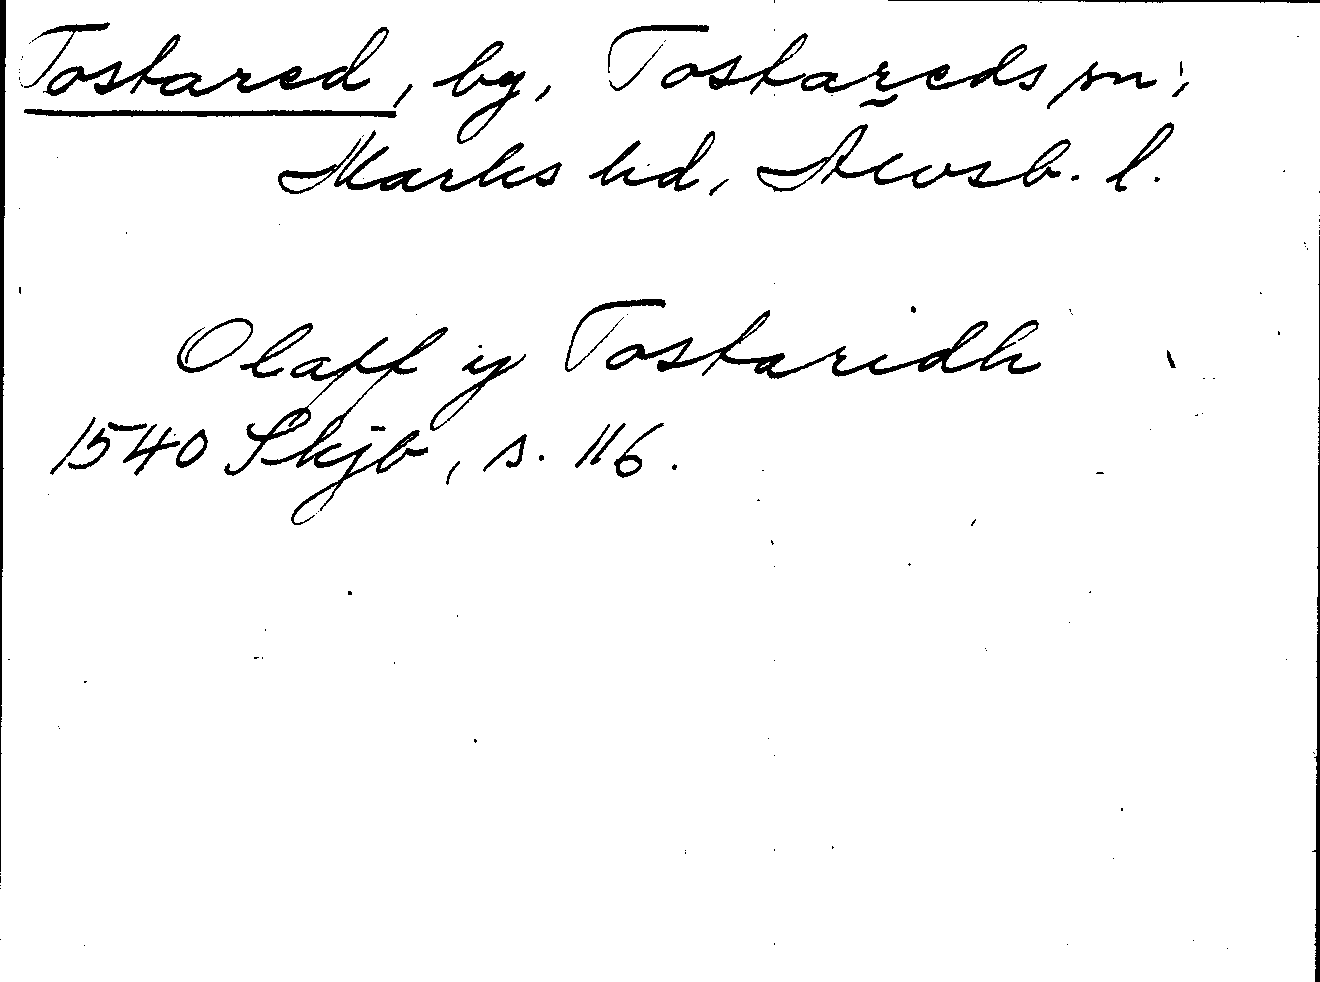 Tostared, by, Tostareds sn,
Marks hd, Älvsb. l.
Olaff ij Tostaridh
1540 Skjb, s. 116.